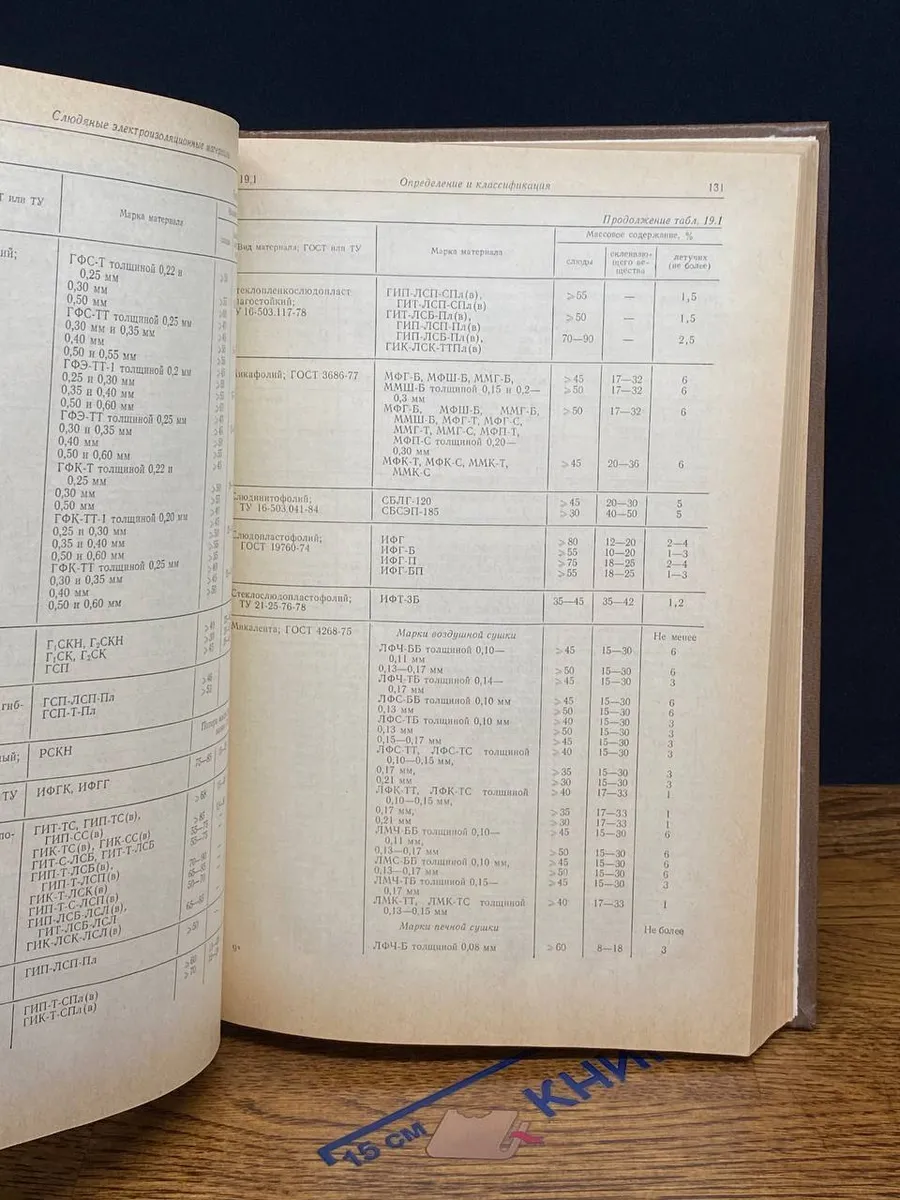 Слюдяные электроизоляционные
Т или ТУ
Марка материала
ГФС-Т толщиной 0,22 и
0,25 мм
0,30 мм
0,50 мм
ГФС-ТТ толщиной 0,25 мм
0,30 мм и 0,35 мм
0,40 мм
0,50 и 0,55 мм
ГФЭ-ТТ-1 толщиной 0,2 мм
0,25 и 0,30 мм
0,35 и 0,40 мм
0,50 и 0,60 мм
ГФЭ-ТТ толщиной 0,25 мм
0,30 и 0,35 мм
0,40 мм
0,50 и 0,60 мм
ГФК-Т толщиной 0,22 и
0,25 мм
0,30 мм
0,50 мм
ГФК-ТТ-1 толщиной 0,20 мм
0,25 и 0,30 мм
0,35 и 0,40 мм
0,50 и 0,60 мм
ГФК-ТТ толщиной 0,25 мм
0,30 и 0,35 мм
0,40 мм
0,50 и 0,60 мм
Г₁СКН, Г₂СКН
Г₁СК, Г₂СК
ГСП
гиб-
ГСП-ЛСП-Пл
ГСП-Т-Пл
ный;
РСКН
ТУ
ИФГК, ИФГГ
ГИТ-ТС, ГИП-ТС(в),
ГИП-СС(в)
ГИК-ТС(в), ГИК-СС(в)
ГИТ-С-ЛСБ, ГИТ-Т-ЛСБ
ГИП-Т-ЛСБ(в),
ГИП-Т-ЛСП(в)
ГИК-Т-ЛСК(в)
ГИП-Т-С-ЛСП(в)
ГИП-ЛСБ-ЛСЛ(в),
ГИТ-ЛСБ-ЛСЛ
ГИК-ЛСК-ЛСЛ(в)
ГИП-ЛСП-Пл
ГИП-Т-СПл(в)
ГИК-Т-СПл(в)
19.1 Определение и классификация 131
Продолжение табл. 19.1
Вид материала; ГОСТ или ТУ Марка материала Массовое содержание, %
слюды склеиваю-щего ве-щества летучих (не более)
теклопленкослюдопласт ГИП-ЛСП-СПл(в), ⩾55 — 1,5
лагостойкий; ГИТ-ЛСП-СПл(в)
У 16-503.117-78 ГИТ-ЛСБ-Пл(в) ⩾50 — 1,5
ГИП-ЛСП-Пл(в)
ГИП-ЛСБ-Пл(в) 70—90 — 2,5
ГИК-ЛСК-ТТПл(в)
икафолий; ГОСТ 3686-77 МФГ-Б, МФШ-Б, ММГ-Б, ⩾45 17—32 6
ММШ-Б толщиной 0,15 и 0,2— ⩾50 17—32 6
0,3 мм
МФГ-Б, МФШ-Б, ММГ-Б, ⩾50 17—32 6
ММШ-Б, МФГ-Т, МФГ-С,
ММГ-Т, ММГ-С, МФП-Т,
МФП-С толщиной 0,20—
0,30 мм
МФК-Т, МФК-С, ММК-Т, ⩾45 20—36 6
ММК-С
людинитофолий; СБЛГ-120 ⩾45 20—30 5
ТУ 16-503.041-84 СБСЭП-185 ⩾30 40—50 5
людопластофолий; ИФГ ⩾80 12—20 2—4
ГОСТ 19760-74 ИФГ-Б ⩾55 10—20 1—3
ИФГ-П ⩾75 18—25 2—4
ИФГ-БП ⩾55 18—25 1—3
Стеклослюдопластофолий; ИФТ-3Б 35—45 35—42 1,2
ТУ 21-25-76-78
Микалента; ГОСТ 4268-75 Марки воздушной сушки Не менее
ЛФЧ-ББ толщиной 0,10— ⩾45 15—30 6
0,11 мм
0,13—0,17 мм ⩾50 15—30 6
ЛФЧ-ТБ толщиной 0,14— ⩾45 15—30 3
0,17 мм
ЛФС-ББ толщиной 0,10 мм ⩾45 15—30 6
0,13 мм ⩾50 15—30 6
ЛФС-ТБ толщиной 0,10 мм ⩾40 15—30 3
0,13 мм ⩾50 15—30 3
0,15—0,17 мм ⩾45 15—30 3
ЛФС-ТТ, ЛФС-ТС толщиной ⩾40 15—30 3
0,10—0,15 мм,
0,17 мм, ⩾35 15—30 3
0,21 мм ⩾30 15—30 3
ЛФК-ТТ, ЛФК-ТС толщиной ⩾40 17—33 1
0,10—0,15 мм,
0,17 мм, ⩾35 17—33 1
0,21 мм ⩾30 17—33 1
ЛМЧ-ББ толщиной 0,10— ⩾45 15—30 6
0,11 мм,
0,13—0,17 мм ⩾50 15—30 6
ЛМС-ББ толщиной 0,10 мм, ⩾45 15—30 6
0,13—0,17 мм ⩾50 15—30 6
ЛМЧ-ТБ толщиной 0,15— ⩾45 15—30 3
0,17 мм
ЛМК-ТТ, ЛМК-ТС толщиной ⩾40 17—33 1
0,13—0,15 мм
Марки печной сушки Не более
ЛФЧ-Б толщиной 0,08 мм ⩾60 8—18 3
9*
15 СМ
КНИ